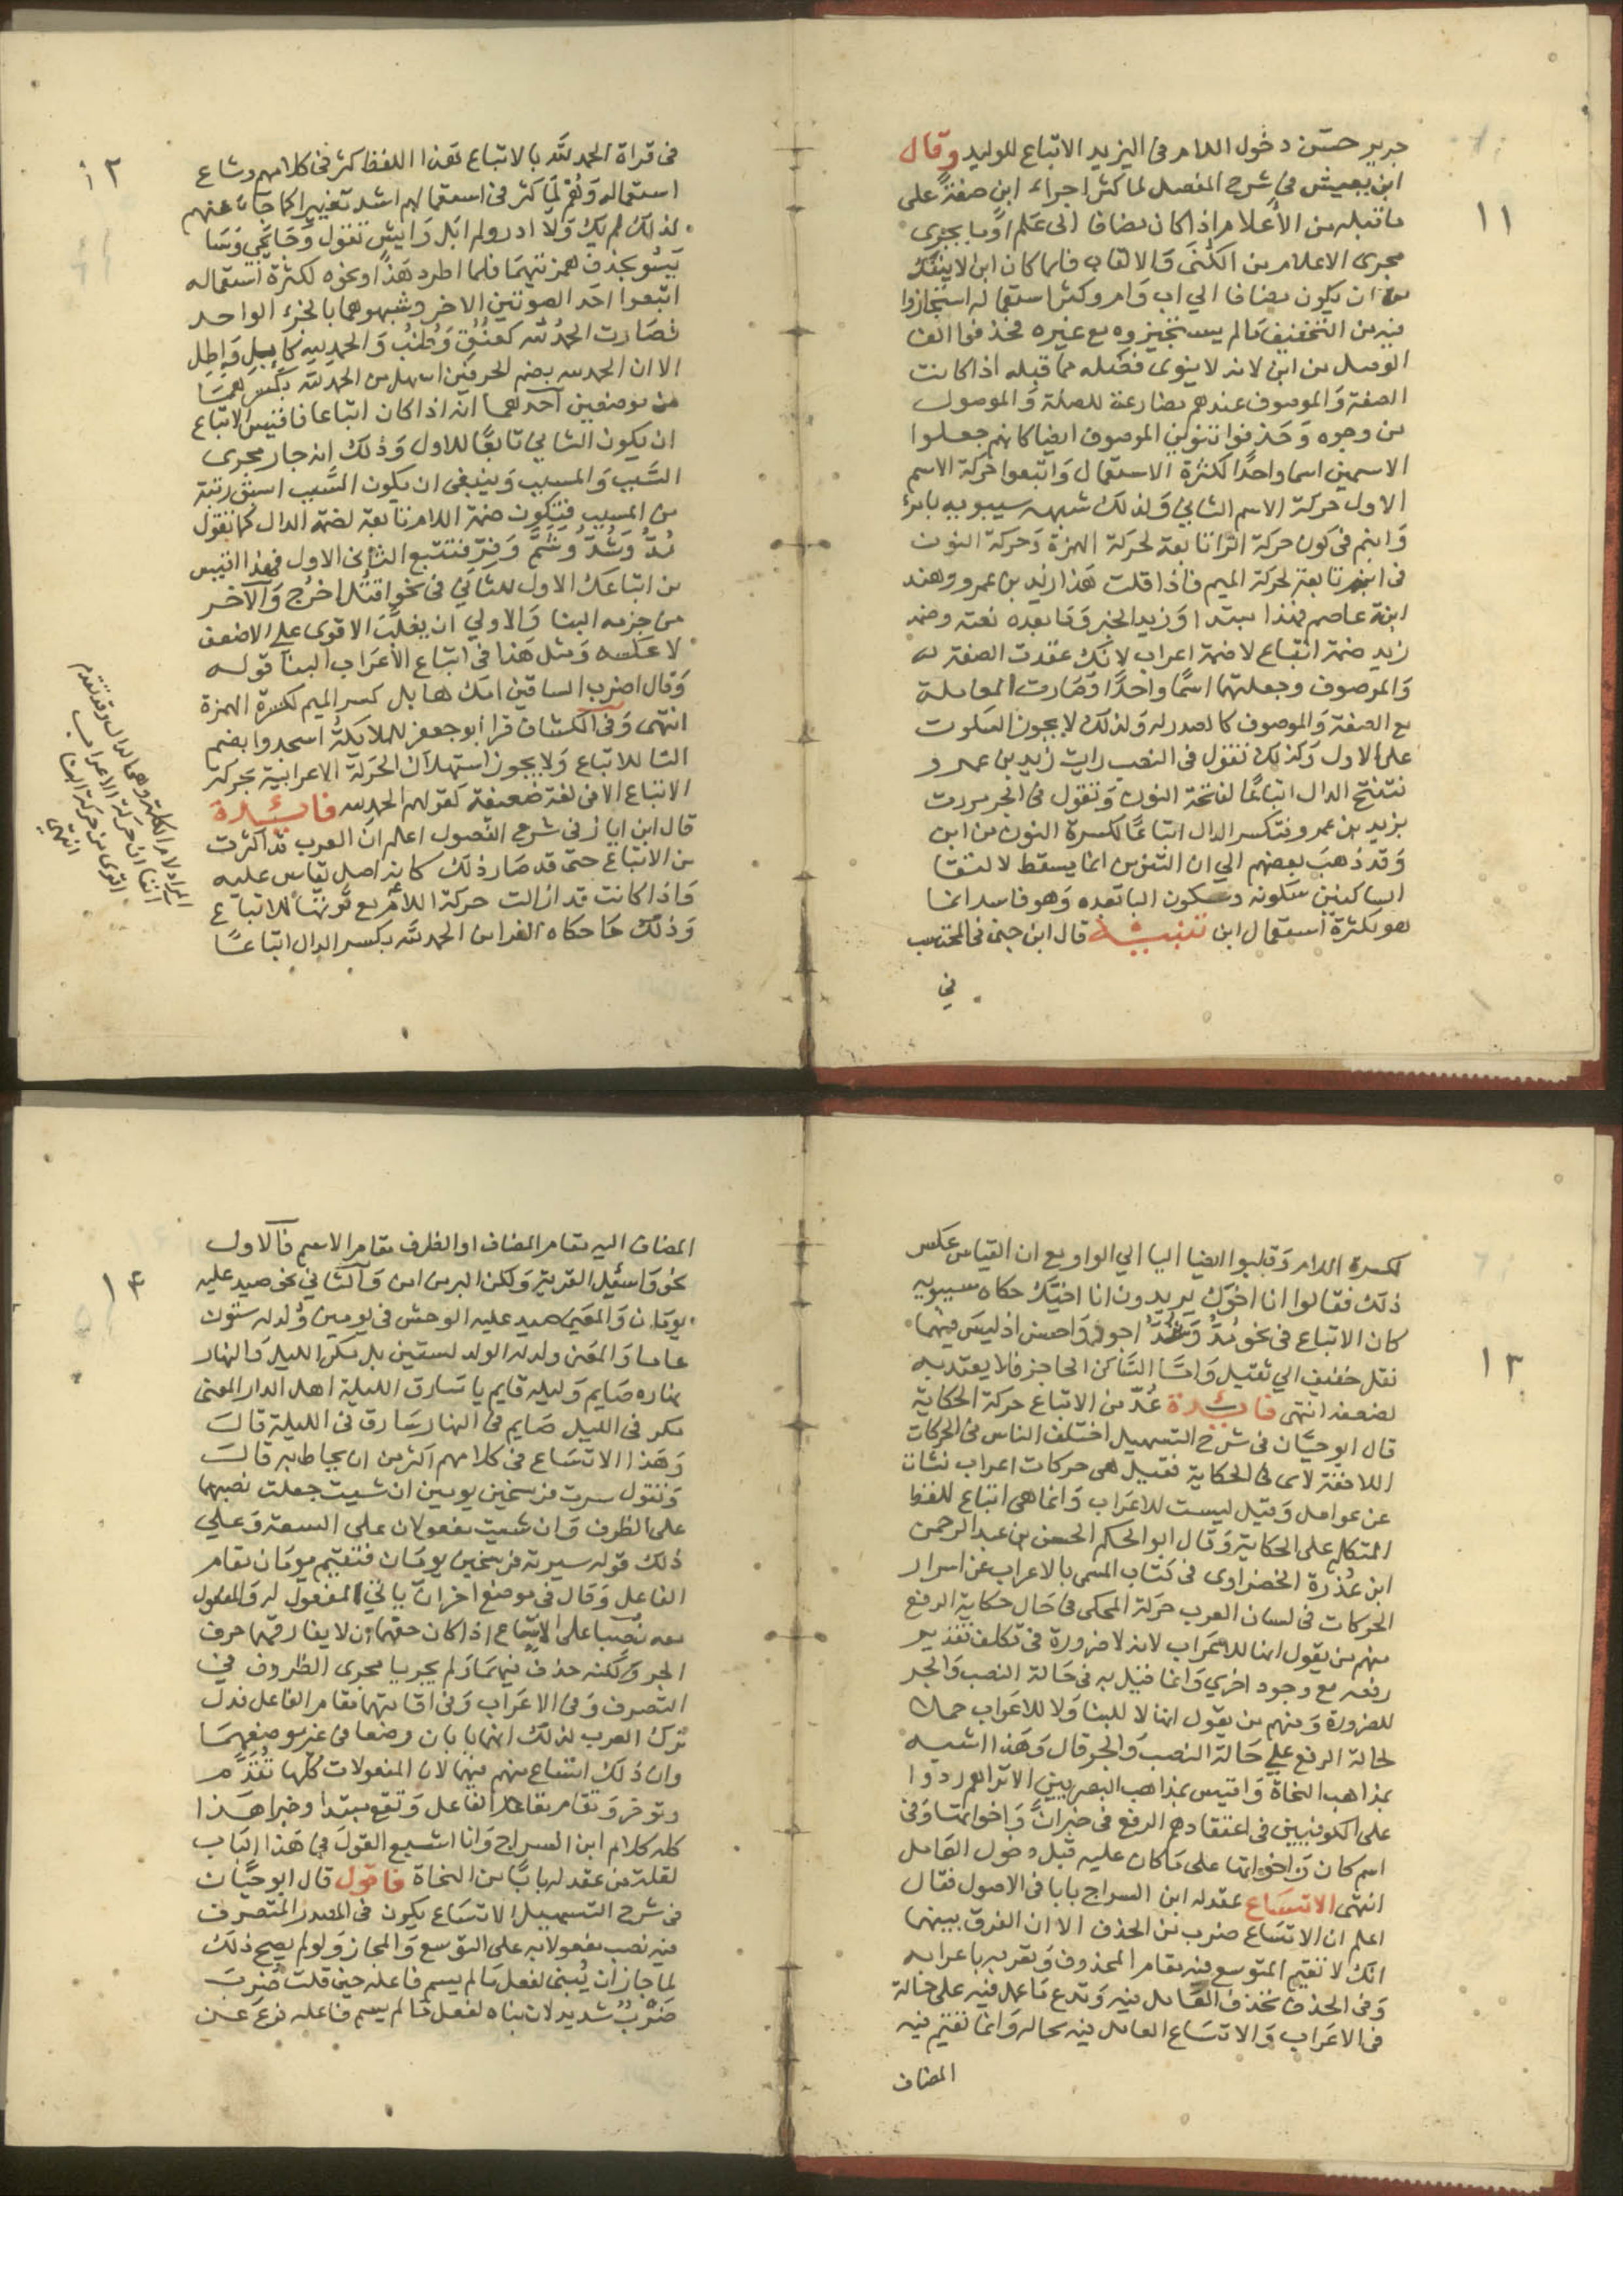 ١١
جرير حسّن دخول اللام في اليزيد الاتباع للوليد وقال
ابن يعيش في شرح المفصل لما كثر اجراء ابن صفةً على
ما قبله من الأعلام اذا كان مضافا الى عَلم او ما يجري
مجرى الاعلام من الكُنَى وَالالقاب فلما كان ابن لا ينفك
من ان يكون مضافا الي اب وَام وكثر استعماله استجازوا
فيه من التخفيف مالم يستجيزوه مع غيره فحذفوا الف
الوصل من ابن لانه لا ينوى فصله مما قبله اذا كانت
الصفة وَالموصوف عندهم مضارعة للصلة وَالموصول
من وجوه وَحذفوا تنوين الموصوف ايضا كانهم جعلوا
الاسمين اسما واحدًا لكثرة الاستعمال وَاتبعوا حركة الاسم
الاول حركة الاسم الثاني وَلذلك شبهه سيبويه بامرُء
وَابنم في كون حركة الرّا تابعة لحركة الهمزة وَحركة النون
في ابنم تابعة لحركة الميم فاذا قلت هَذا زيد بن عمرو وهند
ابنة عاصم فهذا مبتدا وَزيد الخبر وَمَا بعده نعته وضمة
زيد ضمة اتباع لا ضمة اعراب لانك عقدت الصفة
وَالموصوف وجعلتهما اسمًا واحدًا وَصَارت المعاملة
مع الصفة وَالموصوف كالصدر له وَلذلك لا يجوز السكوت
على الاول وَكذلك تقول في النصب رايت زيد بن عمرو
فتفتح الدال اتباعًا لفتحة النون وَتقول في الجر مررت
بزيد بن عمرو فتكسر الدال اتباعًا لكسرة النون من ابن
وَقد ذهبَ بعضهم الي ان التنوين انما يسقط لالتقا
الساكنين سكونه وسكون البا بعده وَهو فاسد انما
هو لكثرة استعمال ابن تنبيه قال ابن جنى في المحتسب
في
١٢
في قراة الحمد للَّه بالاتباع هَذا اللفظ كثر في كلامهم وشاع
استعماله وَهُمْ لمَا كثر في استعمالهم اشد تغييرا كما جَاء عنهم
لذلك لم يك وَلا ادر ولم ابَل وَايش تقول وَجَا يَجِي وَسَا
يَسُو بحذف همزتيهمَا فلما اطرد هَذا ونحوه لكثرة استعماله
اتبعوا احَد الصوتين الاخر وشبهوهما بالجزء الواحد
فصَارت الحمُدُ لله كعُنُق وَطُنُب وَالحمدِ لِله كإبِل وَإطِل
الا ان الحمد لله بضم الحرفين اسهل من الحمد لله بكسرهمَا
من موضعين احدهما انه اذا كان اتباعا فاقيس الاتباع
ان يكون الثاني تابعًا للاول وَذلك انه جار مجرى
السَّبب وَالمسبب وَينبغي ان يكون السَّبب اسبق رتبة
من المسبب فتكون ضمة اللام تابعة لضمة الدال كما تقول
مُدُّ وَشُدُّ وَشَمَّ وَفِرِّ فتتبع الثاني الاول فهذا اقيس
من اتباعك الاول للثاني في نحو اقتُل اخرُج وَالآخر
من جزمه البنا وَالاولي ان يغلب الاقوى على الاضعف
لا عكسه وَمثل هَذا في اتباع الأعرَاب البنا قوله
وَقال اضرب الساقين امّك هابل كسر الميم لكسرة الهمزة
انتهى وَفي الكشاف قرا ابو جعفر للملايكةُ اسجدوا بضم
التا للاتباع وَلا يجوز استهلاك الحرَكة الاعرابية بحركة
الاتباع الا في لغة ضعيفة كقولهم الحمد لله فائدة
قال ابن اياز في شرح الفصول اعلم ان العرب قد اكثرت
من الاتباع حتى قد صَار ذلك كانه اصل يقاس عليه
وَاذا كانت قد ازالت حركة اللام مع قوتها للاتباع
وَذلك مَا حكاه الفرا من الحمد للّه بكسر الدال اتباعًا
المراد لام الكلمة وهي الدال وقد تقدم
اننا ان حركة الاعراب
اقوى من حركة البنا
انتهى
١٣
لكسرة اللام وَقلبوا ايضا اليا الي الواو مع ان القياس عكس
ذلك فقالوا انا اخوك يريدون انا اخيك حكاه سيبويه
كان الاتباع في نحو مُدُّ وَشُدُّ اجوز وَاحسن اذ ليسَ فيهما
نقل خفيف الي ثقيل وَامّا السَّاكن الحاجز فلا يعتد به
لضعفه انتهى فائدة عُدّ من الاتباع حركة الحكاية
قال ابو حيّان في شرح التسهيل اختلف الناس في الحركات
اللاحقة لاى في الحكاية فقيل هي حركات اعراب نشات
عن عوامل وَقيل ليست للاعرَاب وَانما هي اتباع للفظ
المتكلم على الحكاية وَقال ابو الحكم الحسن بن عبد الرحمن
ابن عُذرة الخضراوى في كتاب المسمى بالاعراب عن اسرار
الحركات في لسان العرب حركة المحكى في حَال حكاية الرفع
منهم من يقول انها للاعرَاب لانه لا ضرورة في تكلف تقدير
رفعه مع وجود اخري وَانما قيل به في حَالة النصب وَالجر
للضرورة وَمنهم من يقول انها لا للبنا وَلا للاعرَاب حملا
لحالة الرفع علي حَالة النصب وَالجر قال وَهَذا اشبه
بمذاهب النحاة وَاقيس بمذاهب البصريين الا تراهم ردوا
على الكوفيين في اعتقادهم الرفع في خبر انّ وَاخواتها وَفي
اسم كان وَاخواتها على مَا كان عليه قبل دخول العَامل
انتهى الاتسَاع عقد له ابن السراج بابا في الاصول فقال
اعلم ان الاتسَاع ضرب من الحذف الا ان الفرق بينهما
انك لا تقيم المتوسع فيه مقام المحذوف وَتعربه باعرابه
وَفي الحذف تحذف العَامل فيه وَتدع مَا عمل فيه على حَاله
في الاعرَاب وَالاتسَاع العامل فيه بحاله وَانما تقيم فيه
المضاف
١٤
المضاف اليه مقام المضاف او الظرف مقام الاسم فالاول
نحو وَاسئل القرية وَلكن البر من امن وَالثاني نحو صيد عليه
يومَان وَالمعنى صيد عليه الوحش في يومين وَولد له ستون
عاما وَالمعنى ولد له الولد لستين بل مكر الليل وَالنهار
نهاره صَايم وَليله قايم يا سَارق الليلة اهل الدار المعنى
مكر في الليل صَايم في النهار سَارق في الليلة قال
وَهَذا الاتسَاع في كلامهم اكثر من ان يحاط به قال
وَتقول سرت فرسخين يومين ان شيت جعلت نصبهما
على الظرف وَان شيت مفعولان على السعة وَعلي
ذلك قوله سير به فرسخين يومَان فتقيم يومَان مقام
الفاعل وَقال في موضع اخر ان بابي المفعول له وَالمفعول
معه نصبا على الاتسَاع اذ كان حقهما ان لا يفارقهما حرف
الجر وَلكنه حذف فيهمَا وَلم يجريا مجرى الظروف في
التصرف وَفي الاعرَاب وَفي اقامتهما مقام الفاعل فدل
ترك العرب لذلك انهما بابان وضعا في غير موضعهمَا
وان ذلك اتساع منهم فيهما لان المفعولات كلها تُقدَّم
وتوخر وَتقام مقام الفاعل وَتقع مبتدا وخبرا هَذا
كله كلام ابن السراج وَانا اشبع القولَ في هَذا الباب
لقلة من عقد له بابًا من النحاة فاقول قال ابو حيَّان
في شرح التسهيل الاتسَاع يكون في المصدر المتصرف
فينصب مفعولا به على التوسع وَالمجاز وَلو لم يصح ذلك
لما جاز ان يُبنى لفعل مَا لم يسم فاعله حين قلت ضُرِبَ
ضَرْبٌ شديد لان بناه لفعل مَا لم يسم فاعله فرع عن